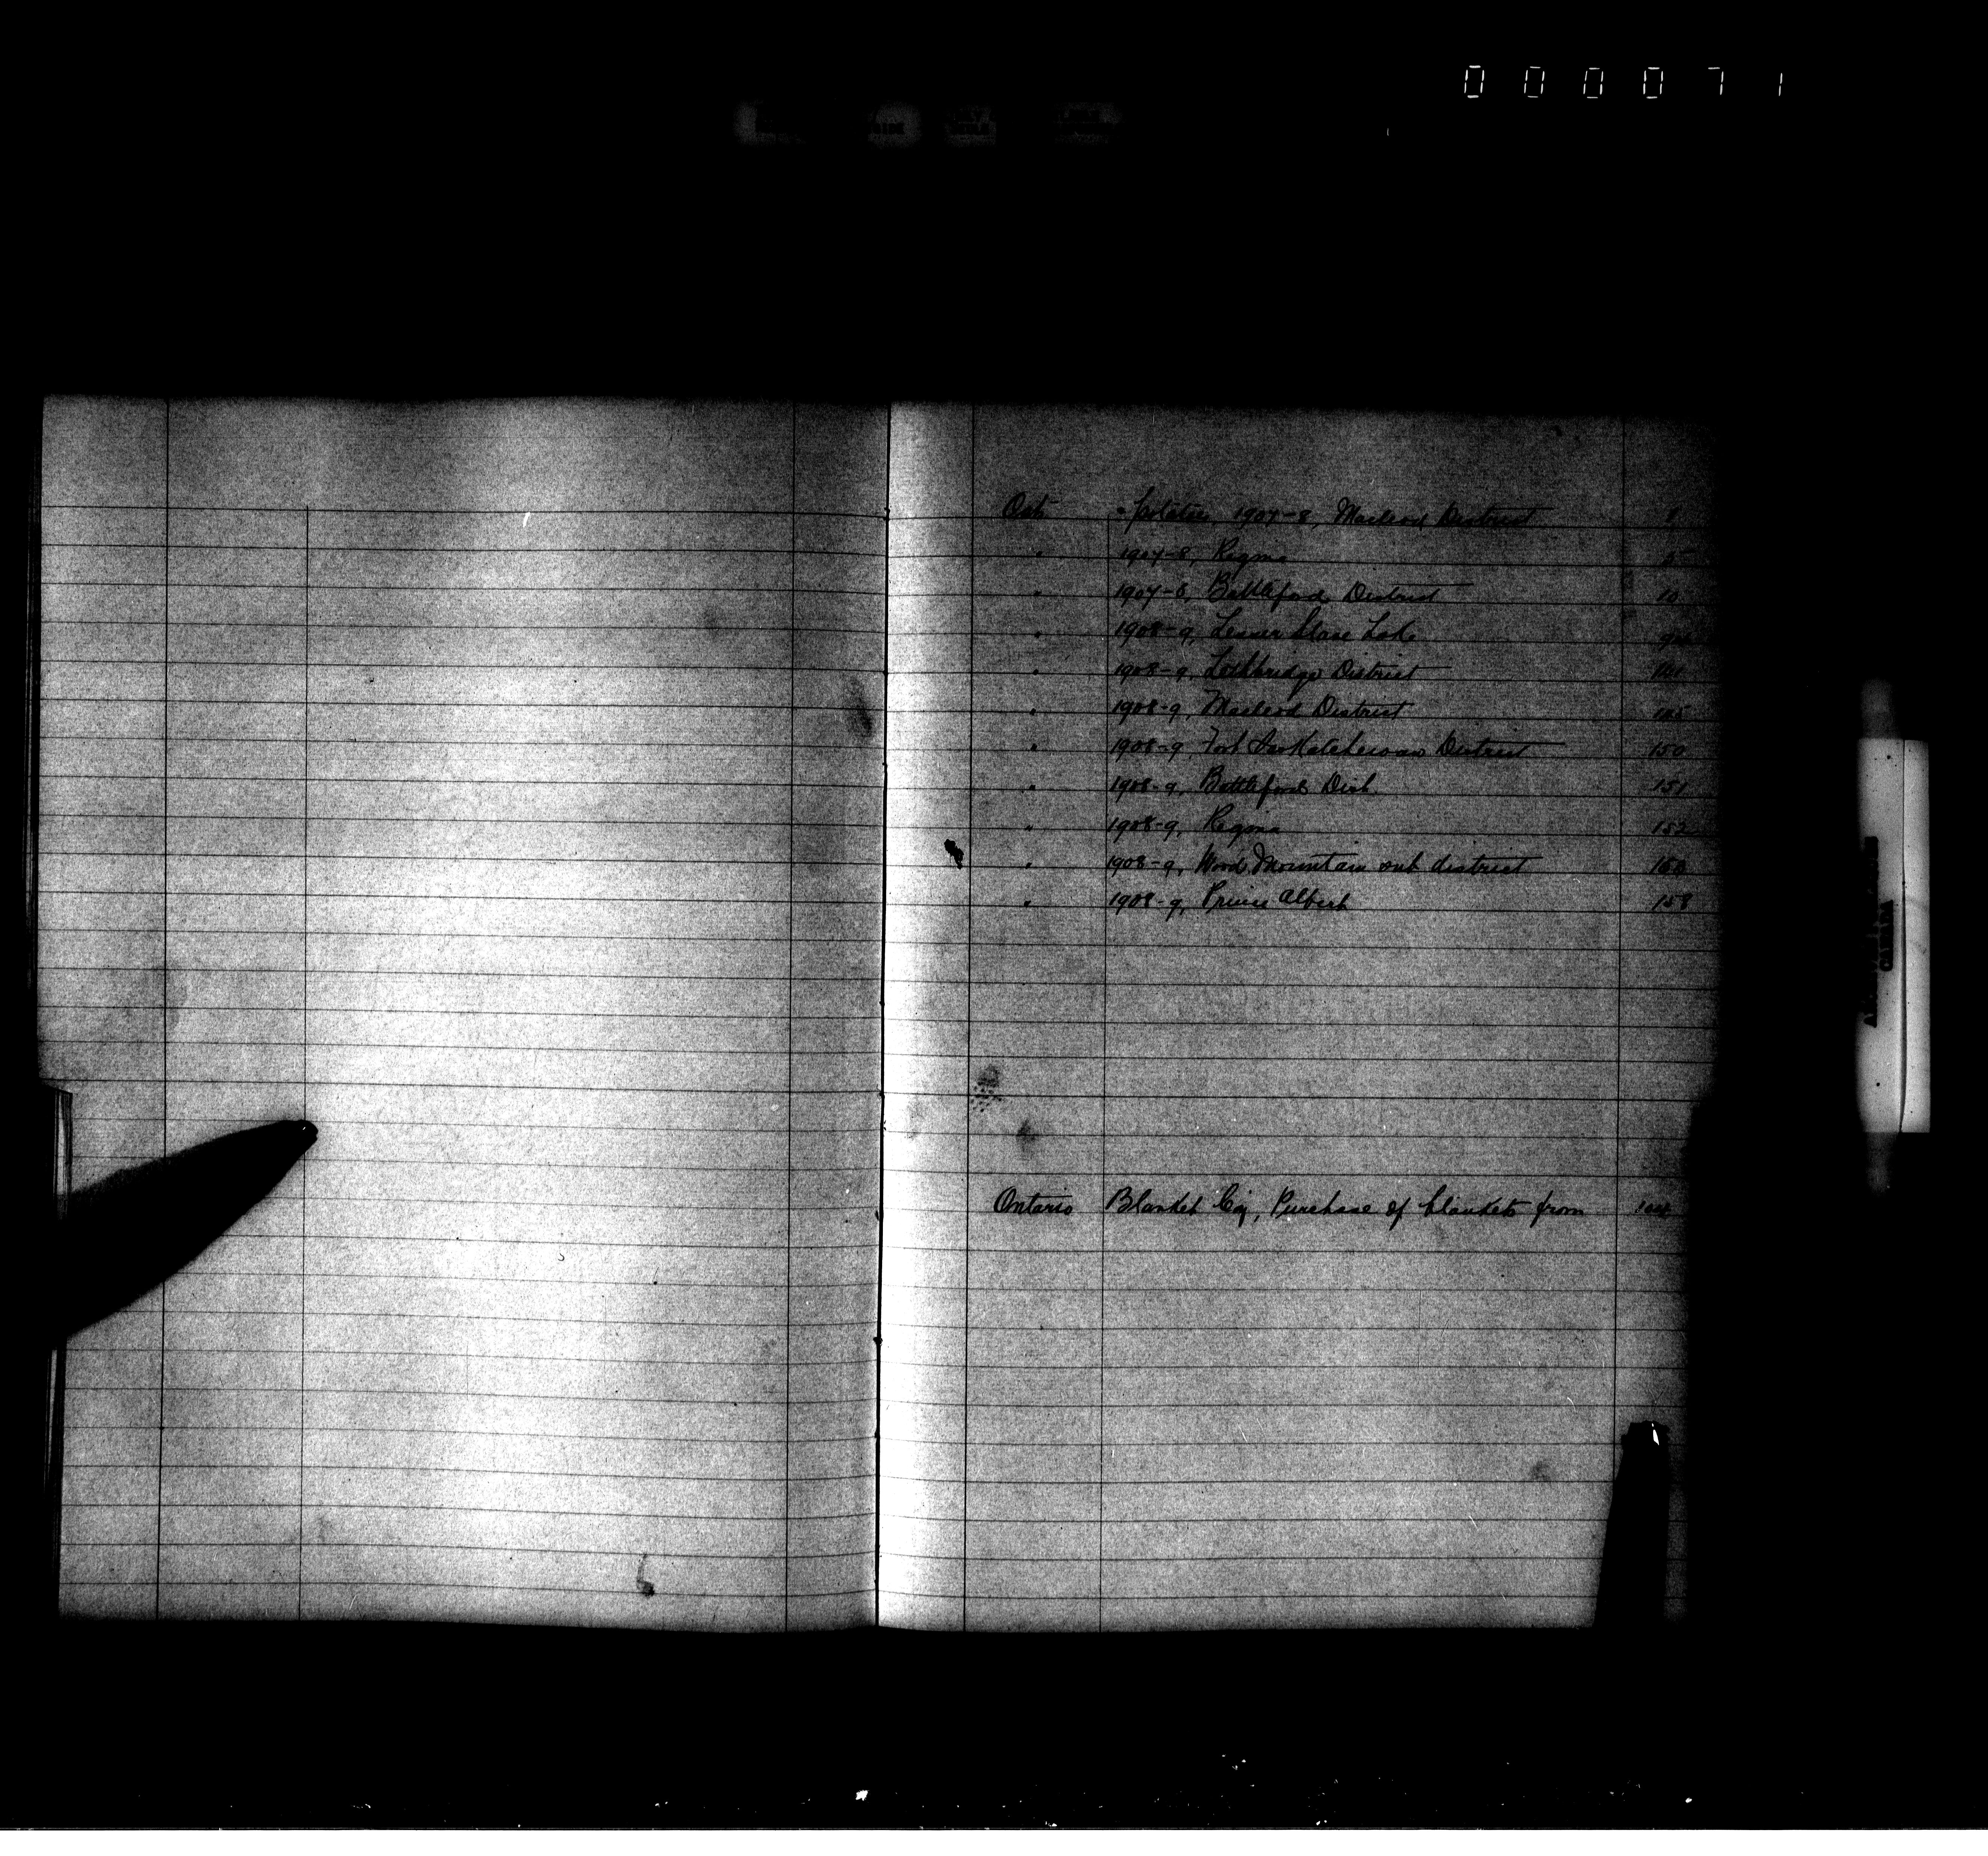 000071
Oats 1907-8, Macleod District
" 1907-8, Regina
" 1907-8, Battleford District 10
" 1908-9, Lesser Slave Lake
" 1908-9, Lethbridge District
" 1908-9, Macleod District
" 1908-9, Fort Saskatchewan District 150
" 1908-9, Battleford Dist. 151
" 1908-9, Regina 152
" 1908-9, Wood Mountain sub district
" 1908-9, Prince Albert 158
Ontario Blanket Co'y, Purchase of blankets from